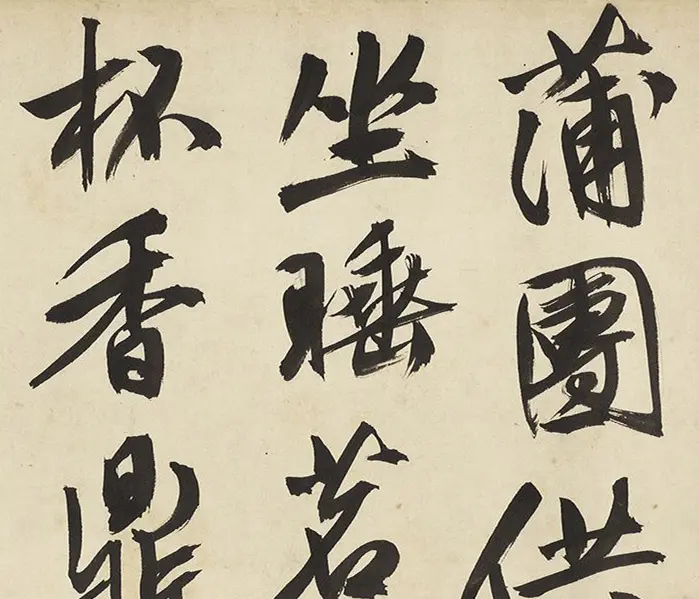 蒲團供
坐睡茗
杯香鼎